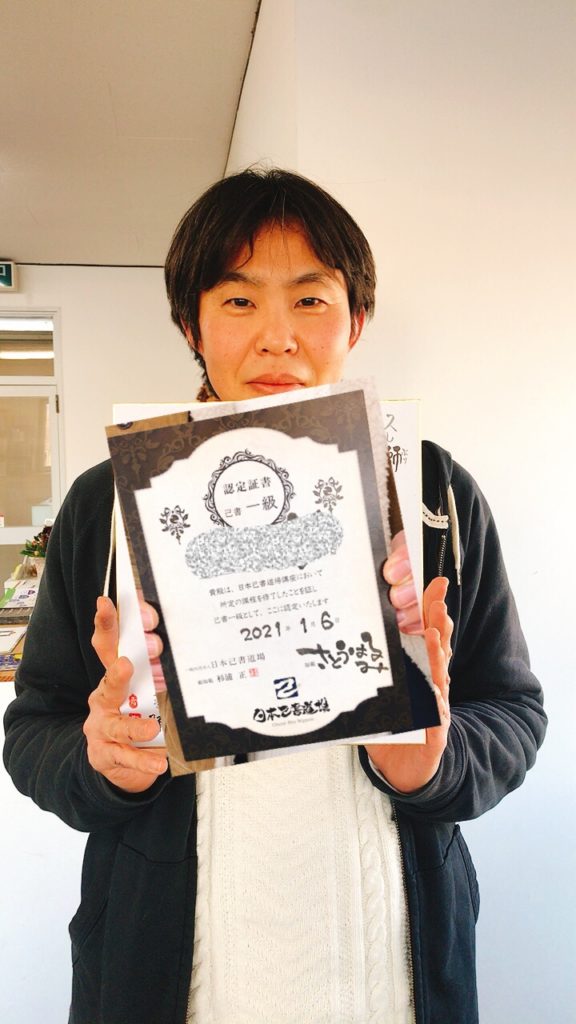 認定証書
己書 一級
貴殿は、日本己書道場講座において
所定の課程を修了したことを証し
己書一級として、ここに認定いたします
2021年 1月 6日
一般社団法人 日本己書道場
総師範 杉浦 正
師範 さとうはるみ
日本己書道場